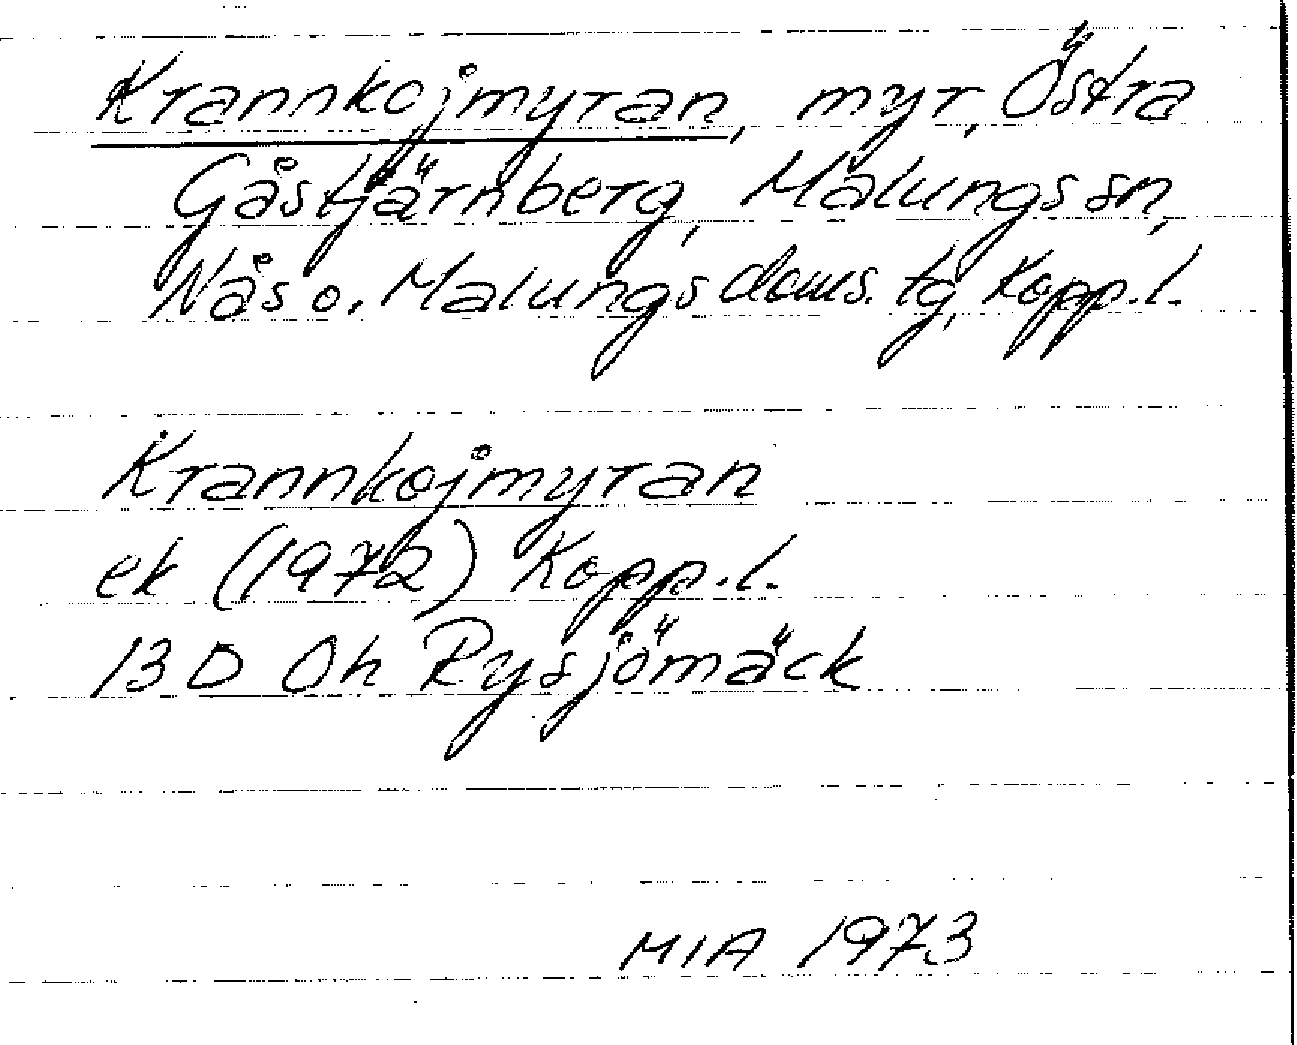 Krannkojmyran, myr, Östra
Gåstjärnberg, Malungs sn,
Nås o. Malungs doms. tg, Kopp.l.
Krannkojmyran
ek (1972) Kopp.l.
13 D 0h Rysjömäck
MIA 1973